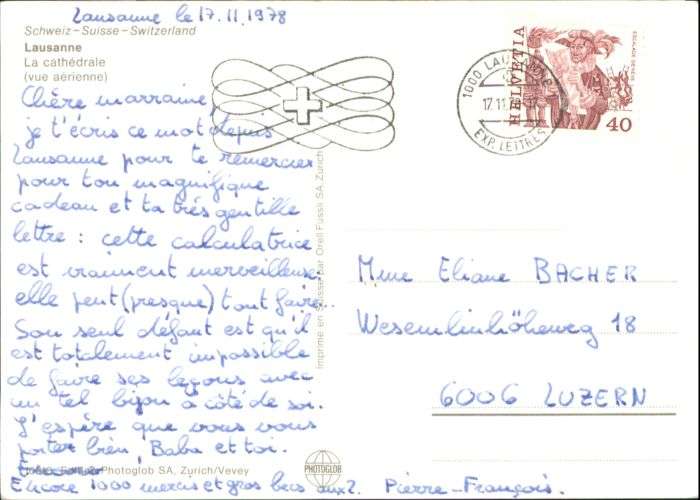 Lausanne le 17.11.1978
Schweiz-Suisse-Switzerland
Lausanne
La cathédrale
(vue aérienne)
Chère marraine,
je t'écris ce mot depuis
Lausanne pour te remercier
pour ton magnifique
cadeau et ta très gentille
lettre : cette calculatrice
est vraiment merveilleuse:
elle peut (presque) tout faire...
Son seul défaut est qu'il
est totalement impossible
de faire ses leçons avec
un tel bijou à côté de soi.
J'espère que vous vous
portez bien, Baba et toi.
Encore 1000 mercis et gros becs aux 2. Pierre-François.
Photoglob SA, Zurich/Vevey
PHOTOGLOB
Imprimé en Suisse par Orell Füssli SA, Zurich
1000 LAUSANNE
17.11.78
EXP. LETTRES
HELVETIA
ESCALADE GENÈVE
40
Mme Eliane BACHER
Wesemlinhöheweg 18
6006 LUZERN